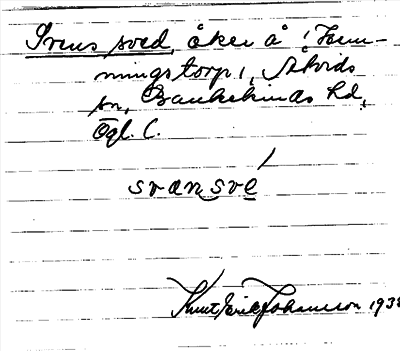 Svens sved, åker å 'Hem-
mingstorp', Åtvids
sn, Bankekinds hd,
Ögl. C.
svænsve
Knut Erik Johansson 193